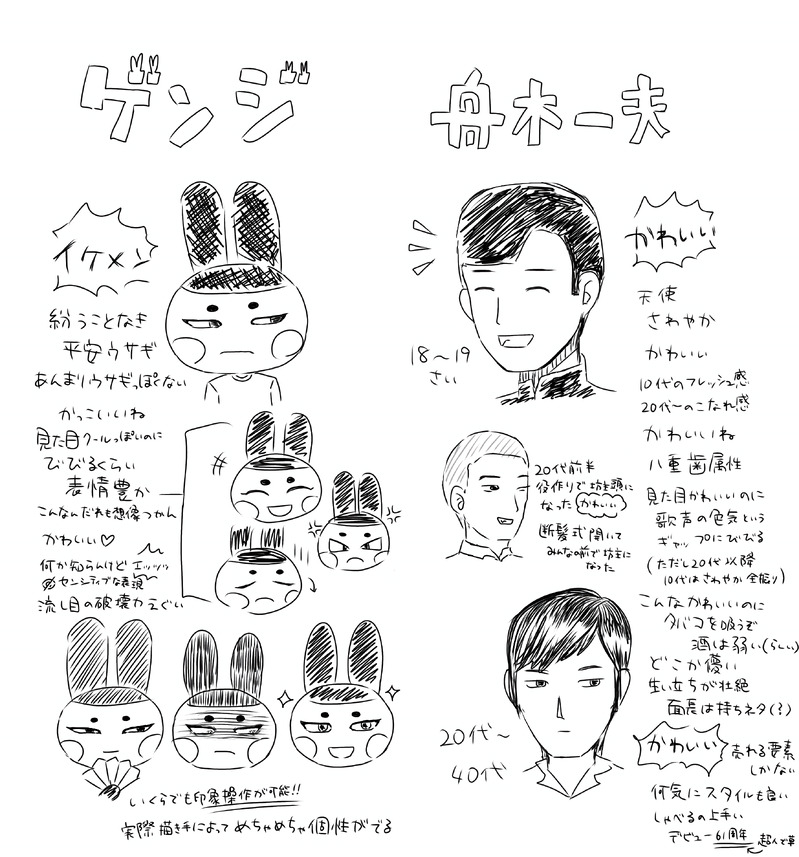 ゲンジ
イケメン
紛うことなき
平安ウサギ
あんまりウサギっぽくない
かっこいいね
見た目クールっぽいのに
びびるくらい
表情豊か
こんなんだれも想像つかん
かわいい♡
何か知らんけどエッッッ
センシティブな表現
流し目の破壊力えぐい
いくらでも印象操作が可能!!
実際描き手によってめちゃめちゃ個性がでる
舟木一夫
かわいい
天使
さわやか
かわいい
10代のフレッシュ感
20代〜のこなれ感
かわいいね
八重歯属性
見た目かわいいのに
歌声の色気という
ギャップにびびる
(ただし20代以降
10代はさわやか全振り)
こんなかわいいのに
タバコを吸うぞ
酒は弱い(らしい)
どこか儚い
生い立ちが壮絶
面長は持ちネタ(?)
かわいい 売れる要素
しかない
何気にスタイルも良い
しゃべるの上手い
デビュー61周年
超人で草
18〜19
さい
20代前半
役作りで坊主頭に
なった かわいい
断髪式開いて
みんなの前で坊主に
なった
20代〜
40代